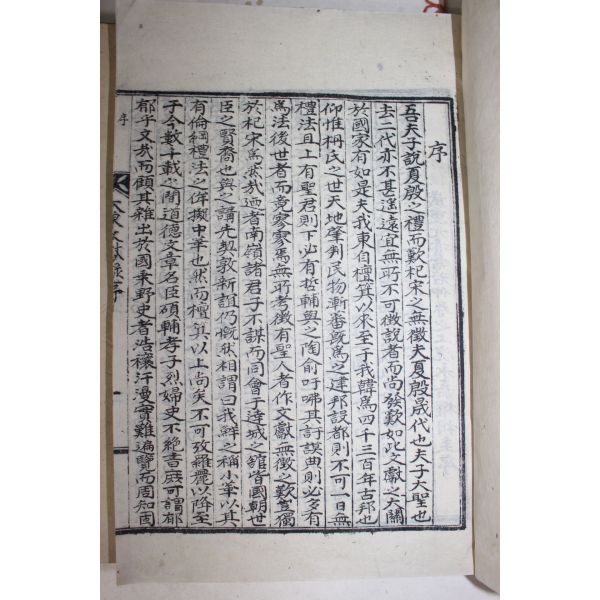 序
吾夫子說夏殷之禮而歎杞宋之無徵夫夏殷晟代也夫子大聖也
去二代亦不甚遙遠宜無所不可徵說者而尚發歎如此之獻之大關
於國家有如是夫我東自檀箕以來至于我韓爲四千三百年古邦也
仰惟桓氏之世天地肇判民物漸畨旣爲之建邦設都則不可一日無
禮法且上有聖君則下必有哲輔與之陶俞吁咈其訏謨典則必多有
爲法後世者而竟寥寥焉無所考徵有聖人者作文獻無徵之歎豈獨
於杞宋爲然哉迺者南嶺諸君子不謀而同會于達城之舘皆國朝世
臣之賢裔也與之講先契敦新誼仍慨然相謂曰我鮮之稱小華以其
有倫綱禮法之侔擬中華也然而檀箕以上尚矣不可攷羅麗以降至
于今數千載之間道德文章名臣碩輔孝子烈婦史不絶書庶可謂郁
郁乎文哉而顧其雜出於國乘野史者浩穰汗漫實難遍覽而周知因
序
大東文獻錄序
一